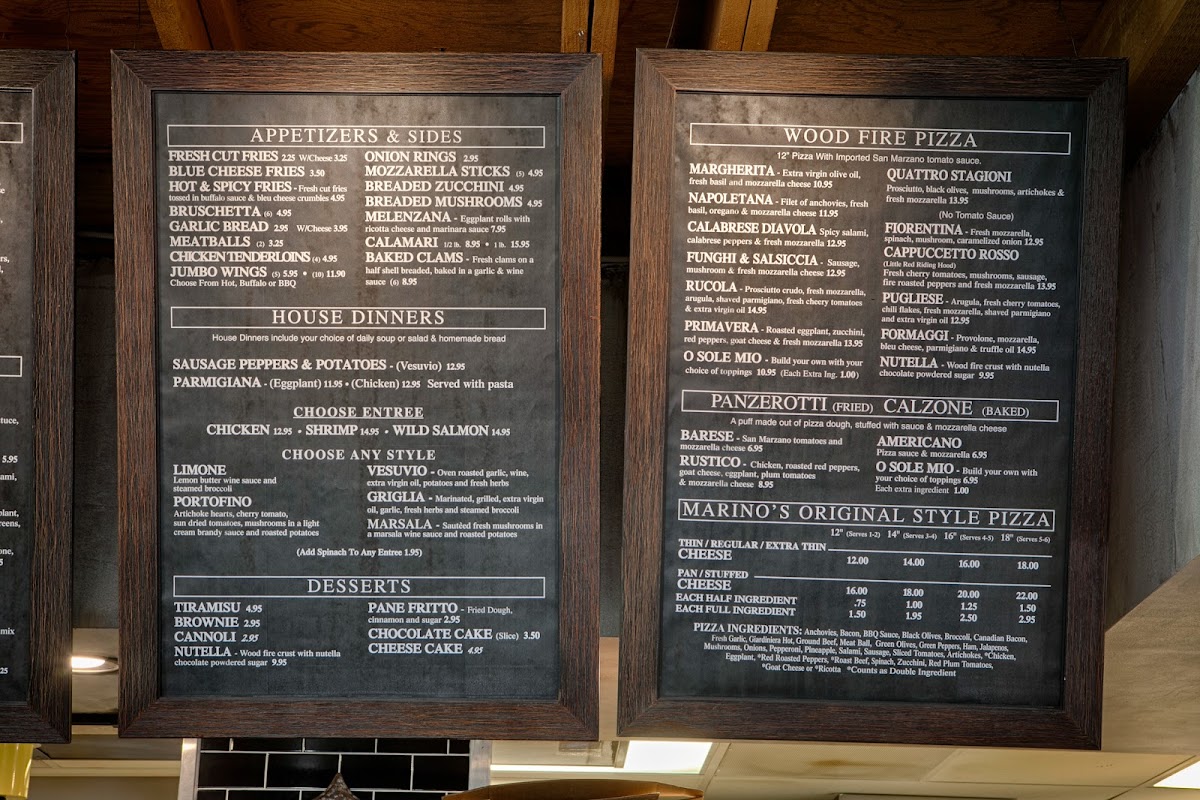 5.95
APPETIZERS & SIDES
FRESH CUT FRIES 2.25 W/Cheese 3.25
BLUE CHEESE FRIES 3.50
HOT & SPICY FRIES - Fresh cut fries
tossed in buffalo sauce & bleu cheese crumbles 4.95
BRUSCHETTA (6) 4.95
GARLIC BREAD 2.95 W/Cheese 3.95
MEATBALLS (2) 3.25
CHICKEN TENDERLOINS (4) 4.95
JUMBO WINGS (5) 5.95 • (10) 11.90
Choose From Hot, Buffalo or BBQ
ONION RINGS 2.95
MOZZARELLA STICKS (5) 4.95
BREADED ZUCCHINI 4.95
BREADED MUSHROOMS 4.95
MELENZANA - Eggplant rolls with
ricotta cheese and marinara sauce 7.95
CALAMARI 1/2 lb. 8.95 • 1 lb. 15.95
BAKED CLAMS - Fresh clams on a
half shell breaded, baked in a garlic & wine
sauce (6) 8.95
HOUSE DINNERS
House Dinners include your choice of daily soup or salad & homemade bread
SAUSAGE PEPPERS & POTATOES - (Vesuvio) 12.95
PARMIGIANA - (Eggplant) 11.95 • (Chicken) 12.95 Served with pasta
CHOOSE ENTREE
CHICKEN 12.95 • SHRIMP 14.95 • WILD SALMON 14.95
CHOOSE ANY STYLE
LIMONE
Lemon butter wine sauce and
steamed broccoli
PORTOFINO
Artichoke hearts, cherry tomato,
sun dried tomatoes, mushrooms in a light
cream brandy sauce and roasted potatoes
VESUVIO - Oven roasted garlic, wine,
extra virgin oil, potatoes and fresh herbs
GRIGLIA - Marinated, grilled, extra virgin
oil, garlic, fresh herbs and steamed broccoli
MARSALA - Sautéed fresh mushrooms in
a marsala wine sauce and roasted potatoes
(Add Spinach To Any Entree 1.95)
DESSERTS
TIRAMISU 4.95
BROWNIE 2.95
CANNOLI 2.95
NUTELLA - Wood fire crust with nutella
chocolate powdered sugar 9.95
PANE FRITTO - Fried Dough,
cinnamon and sugar 2.95
CHOCOLATE CAKE (Slice) 3.50
CHEESE CAKE 4.95
WOOD FIRE PIZZA
12" Pizza With Imported San Marzano tomato sauce.
MARGHERITA - Extra virgin olive oil,
fresh basil and mozzarella cheese 10.95
NAPOLETANA - Filet of anchovies, fresh
basil, oregano & mozzarella cheese 11.95
CALABRESE DIAVOLA Spicy salami,
calabrese peppers & fresh mozzarella 12.95
FUNGHI & SALSICCIA - Sausage,
mushroom & fresh mozzarella cheese 12.95
RUCOLA - Prosciutto crudo, fresh mozzarella,
arugula, shaved parmigiano, fresh cherry tomatoes
& extra virgin oil 14.95
PRIMAVERA - Roasted eggplant, zucchini,
red peppers, goat cheese & fresh mozzarella 13.95
O SOLE MIO - Build your own with your
choice of toppings 10.95 (Each Extra Ing. 1.00)
QUATTRO STAGIONI
Prosciutto, black olives, mushrooms, artichokes &
fresh mozzarella 13.95
(No Tomato Sauce)
FIORENTINA - Fresh mozzarella,
spinach, mushroom, caramelized onion 12.95
CAPPUCCETTO ROSSO
(Little Red Riding Hood)
Fresh cherry tomatoes, mushrooms, sausage,
fire roasted peppers and fresh mozzarella 13.95
PUGLIESE - Arugula, fresh cherry tomatoes,
chili flakes, fresh mozzarella, shaved parmigiano
and extra virgin oil 12.95
FORMAGGI - Provolone, mozzarella,
bleu cheese, parmigiano & truffle oil 14.95
NUTELLA - Wood fire crust with nutella
chocolate powdered sugar 9.95
PANZEROTTI (FRIED) CALZONE (BAKED)
A puff made out of pizza dough, stuffed with sauce & mozzarella cheese
BARESE - San Marzano tomatoes and
mozzarella cheese 6.95
RUSTICO - Chicken, roasted red peppers,
goat cheese, eggplant, plum tomatoes
& mozzarella cheese 8.95
AMERICANO
Pizza sauce & mozzarella 6.95
O SOLE MIO - Build your own with
your choice of toppings 6.95
Each extra ingredient 1.00
MARINO'S ORIGINAL STYLE PIZZA
12" (Serves 1-2) 14" (Serves 3-4) 16" (Serves 4-5) 18" (Serves 5-6)
THIN / REGULAR / EXTRA THIN
CHEESE 12.00 14.00 16.00 18.00
PAN / STUFFED
CHEESE 16.00 18.00 20.00 22.00
EACH HALF INGREDIENT .75 1.00 1.25 1.50
EACH FULL INGREDIENT 1.50 1.95 2.50 2.95
PIZZA INGREDIENTS: Anchovies, Bacon, BBQ Sauce, Black Olives, Broccoli, Canadian Bacon,
Fresh Garlic, Giardiniera Hot, Ground Beef, Meat Ball, Green Olives, Green Peppers, Ham, Jalapenos,
Mushrooms, Onions, Pepperoni, Pineapple, Salami, Sausage, Sliced Tomatoes, Artichokes, *Chicken,
Eggplant, *Red Roasted Peppers, *Roast Beef, Spinach, Zucchini, Red Plum Tomatoes,
*Goat Cheese or *Ricotta *Counts as Double Ingredient